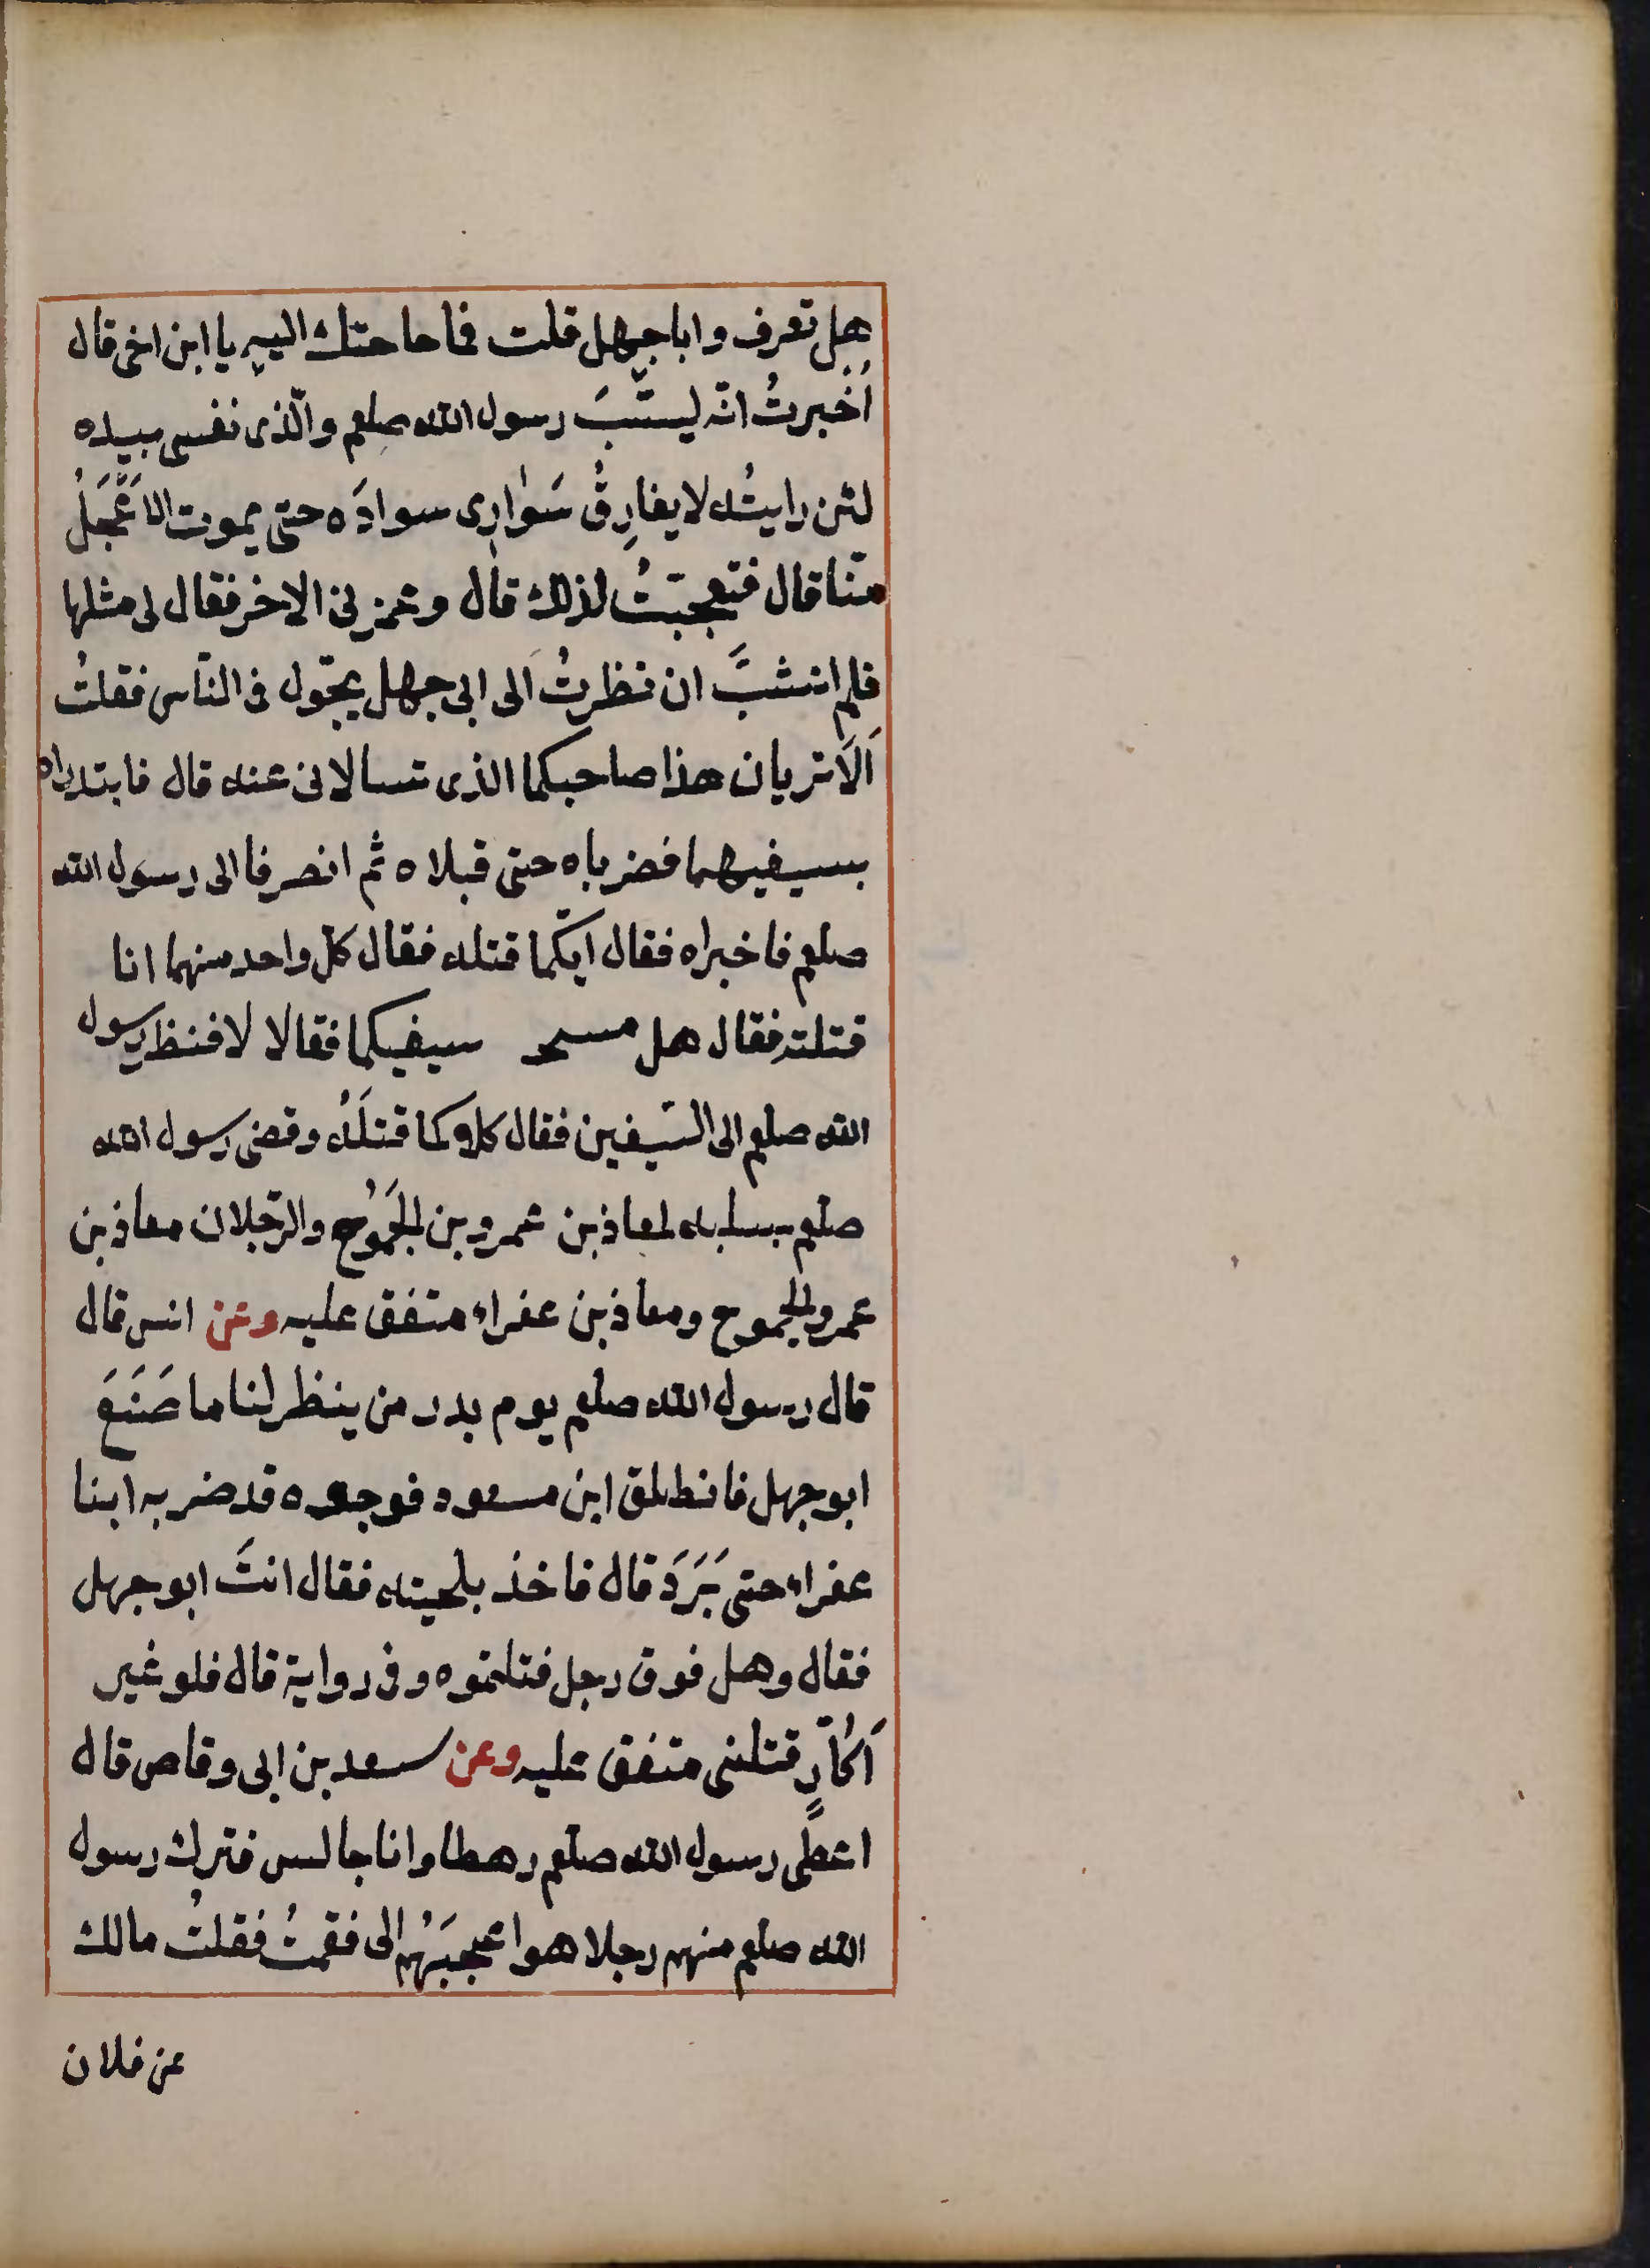 هل تعرف وابا جهل قلت فما حاجتك اليه يا ابن اخى قال
اُخْبِرتُ انّه ليسُّبَ رسول الله صلعم والّذى نفسى بيده
لئن رايتُه لا يفارِقُ سَوٰادِى سوادَه حتى يموت الاَعْجَلُ
منّا قال فتعجبتُ لذلك قال وغمزنى الاخر فقال لى مثلها
فلم انشبَّ ان نظرتُ الى ابى جهل يجّول فى النّاس فقلتُ
اَلاَ تريان هذا صاحبكما الذى تسالانى عنه قال فابتدراه
بسيفيهما فضرباه حتى قبلاه ثم انصرفا الى رسول الله
صلعم فاخبراه فقال ايّكما قتله فقال كل واحد منهما انا
قتلته فقال هل مسحـ سيفيكما فقالا لا فنظر رسول
الله صلعم الى السّيفين فقال كلاكما قتلَهُ وقضى رسول الله
صلعم بسلبه لمعاذ بن عمرو بن الجَمُوح والرّجلان معاذ بن
عمرو الجموح ومعاذ بن عفراء متفق عليه وعن انس قال
قال رسول الله صلعم يوم بدر من ينظر لنا ما صَنَعَ
ابو جهل فانطلق ابن مسعود فوجده قد ضربه ابنا
عفراء حتى بَرَدَ قال فاخذ بلحيته فقال انتَ ابو جهل
فقال وهل فوق رجل قتلتموه وفى رواية قال فلو غير
اَكّارٍ قتلنى متفق عليه وعن سعد بن ابى وقاص قال
اعطى رسول الله صلعم رهطا وانا جالس فترك رسول
الله صلعم منهم رجلا هو اعجبَهُم الى فقمتُ فقلتُ مالك
عن فلان